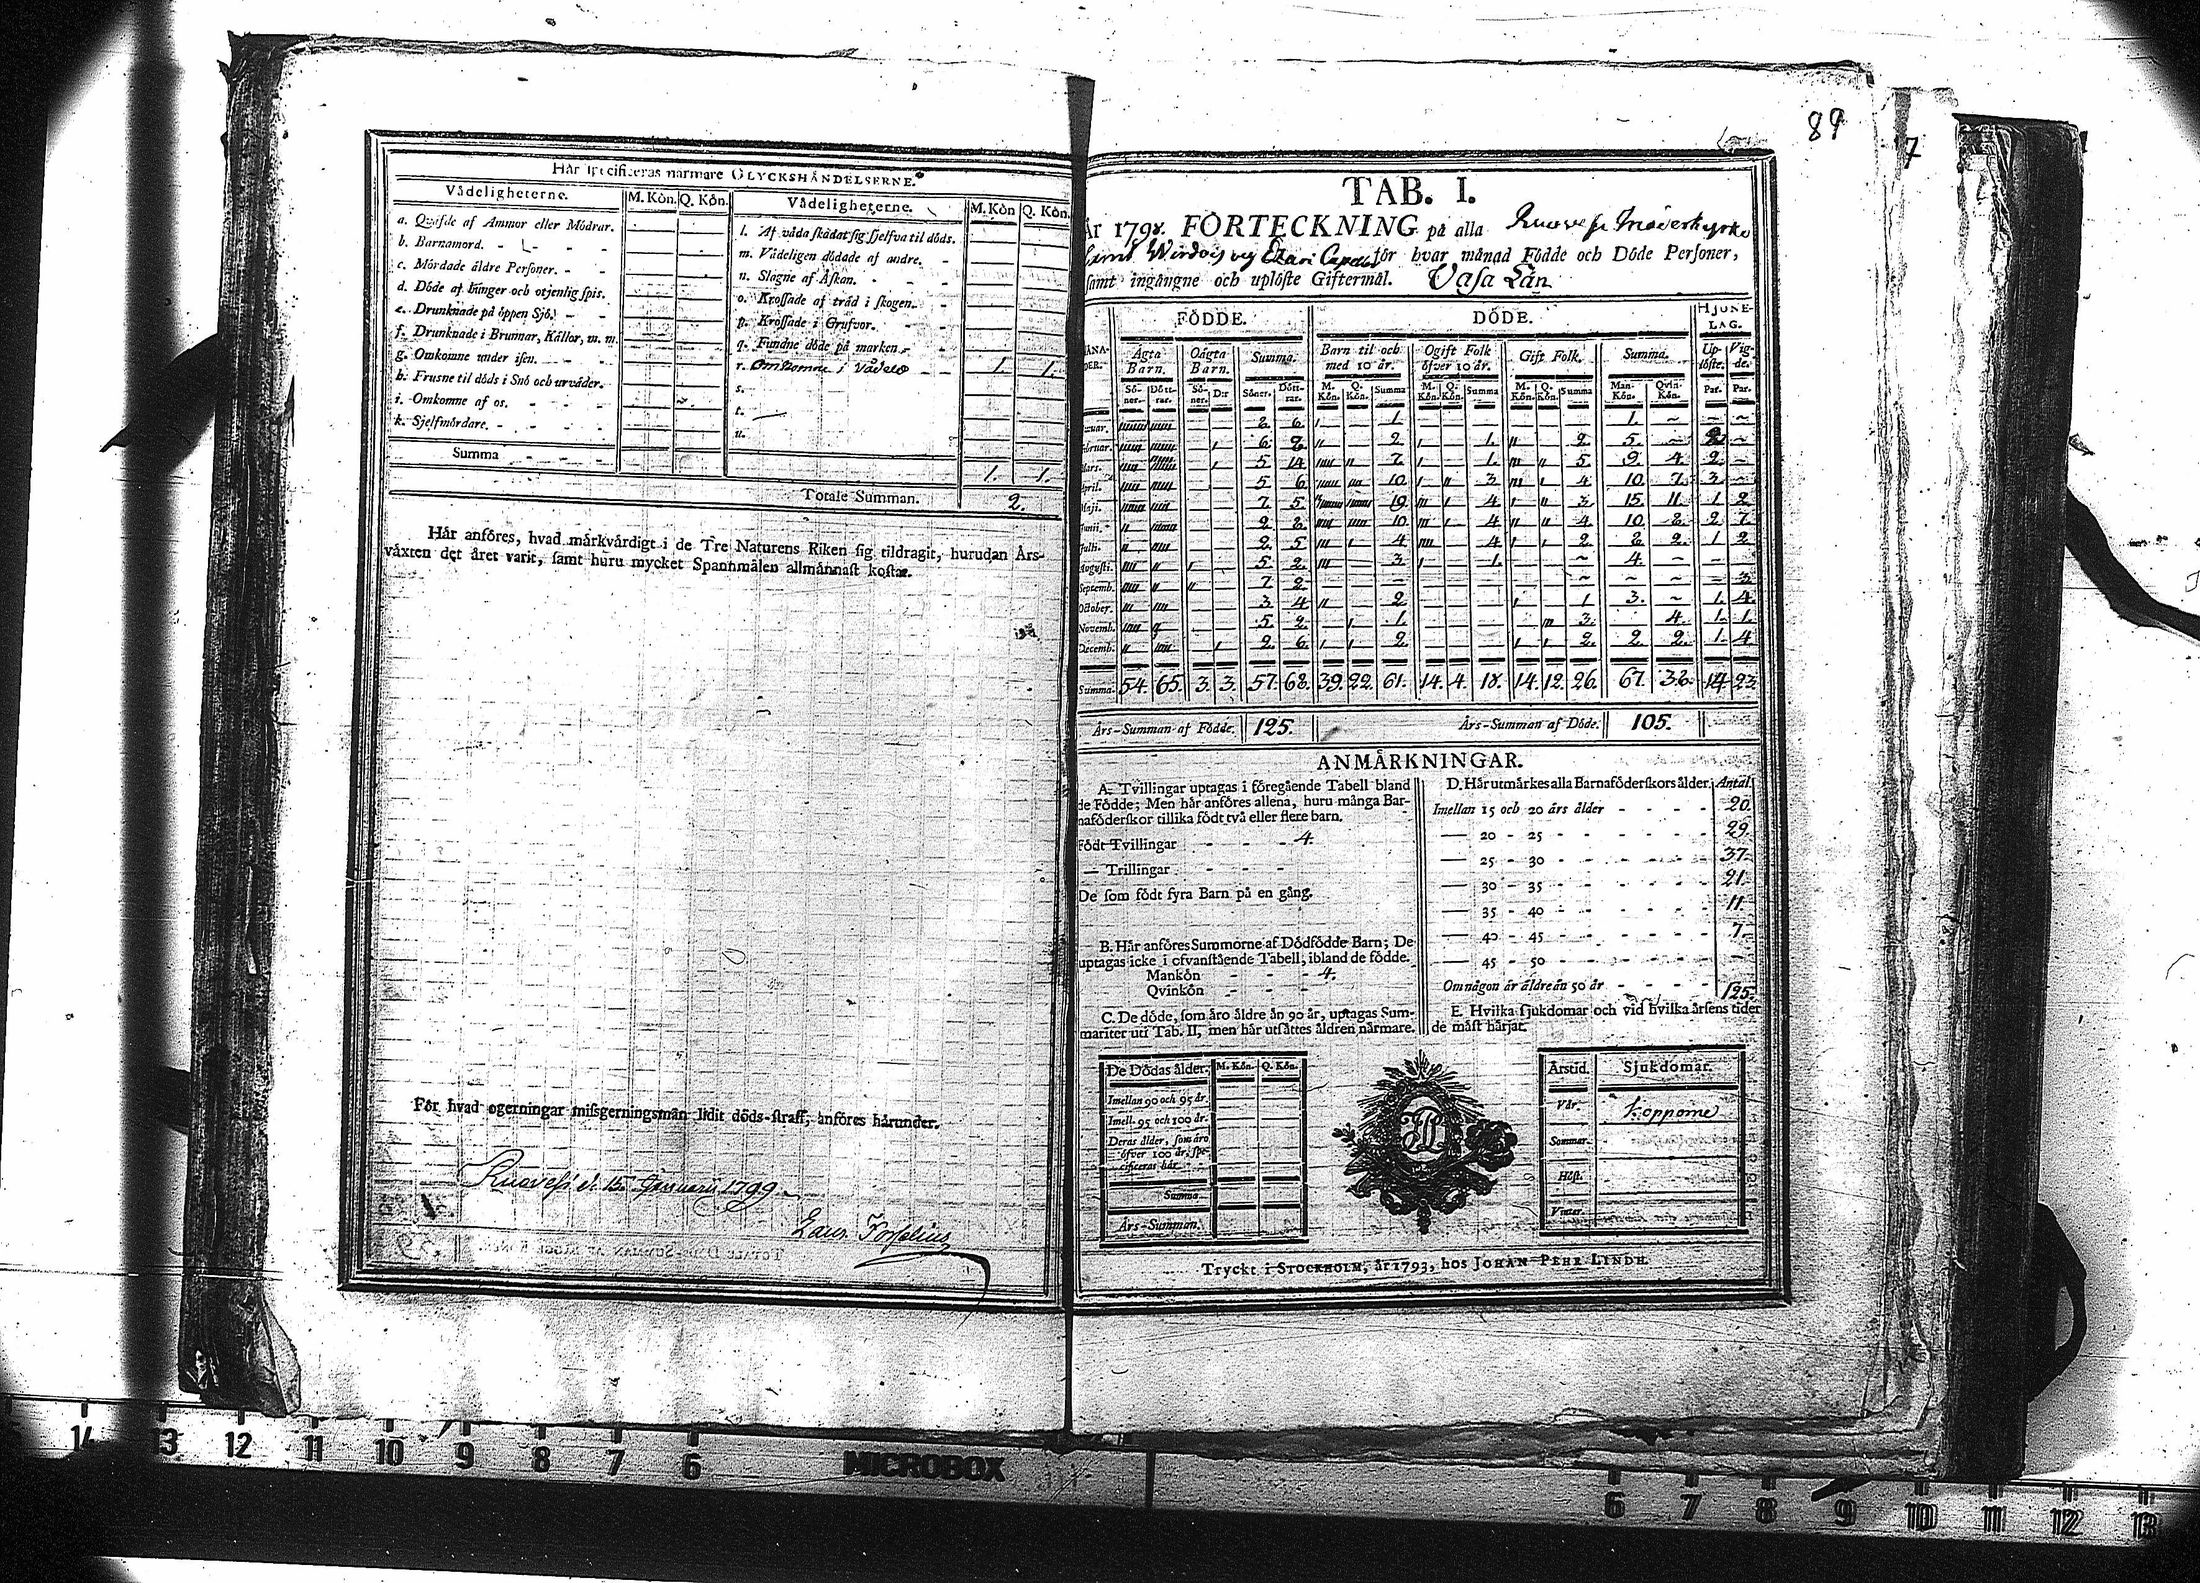 Hår specificeras närmare OLYCKSHÄNDELSERNE.
Vådeligheterne. M. Kön. Q. Kön. Vådeligheterne. M. Kön Q. Kön.
a. Qväfde af Ammor eller Mödrar.
b. Barnamord.
c. Mördade äldre Personer.
d. Döde af hunger och otjenlig spis.
e. Drunknade på öppen Sjö.
f. Drunknade i Brunnar, Källor, m. m.
g. Omkomne under isen.
h. Frusne til döds i Snö och urväder.
i. Omkomne af os.
k. Sjelfmördare.
Summa
l. Af våda skådat sig sjelfva til döds.
m. Vådeligen dödade af andre.
n. Slagne af Åskan.
o. Krossade af träd i skogen.
p. Krossade i Grufvor.
q. Fundne döde på marken.
r. Omkomne i vådeld 1. 1.
s.
t.
u.
1. 1.
Totale Summan. 2.
Här anföres, hvad märkvärdigt i de Tre Naturens Riken sig tildragit, hurudan Års-
växten det året varit, samt huru mycket Spannmålen allmännast kostar.
För hvad ogerningar missgerningsmän lidit döds-straff, anföres härunder.
Ruovesi d. 15. Januarii 1799
Laur. Forselius
89
7
TAB. I.
År 1798. FÖRTECKNING på alla Ruovesi Moderkyrko
samt Wirdois och Capell för hvar månad Födde och Döde Personer,
samt ingångne och uplöste Giftermål. Vasa Län
FÖDDE. DÖDE. HJONE-
LAG.
MÅNA-
DER. Ägta
Barn. Oägta
Barn. Summa. Barn til och
med 10 år. Ogift Folk
öfver 10 år. Gift Folk. Summa. Up-
löste. Vig-
de.
Sö-
ner. Dött-
rar. Sö-
ner. D:r Söner. Dött-
rar. M.
Kön. Q.
Kön. Summa M.
Kön. Q.
Kön. Summa M.
Kön. Q.
Kön. Summa Man-
Kön. Qvin-
Kön. Par. Par.
Januar. 2 6 1 1.
Februar. 6. 8. 2. 1. 2. 5.
Mars. 5. 14 7. 1. 5. 9. 4. 2.
April. 5 6 10. 3 4. 10 7. 3.
Maji. 7. 5. 19. 4. 3. 15. 11. 1. 2
Junii. 2 8. 10 4 4. 10 8. 2 7.
Julii. 2. 5 4 4 2. 8. 2. 1 2
Augusti. 5 2. 3. 1. 4.
Septemb. 7 2 3
October. 3. 4 2. 1 3. 1. 4.
Novemb. 5 2. 1. 3. 4. 1. 1.
Decemb. 2. 6. 2. 2. 2. 2. 1. 4
Summa. 54. 65. 3. 3. 57. 68. 39. 22. 61. 14. 4. 18. 14. 12. 26. 67. 38. 14. 23.
Års-Summan af Födde. 125. Års-Summan af Döde. 105.
ANMÄRKNINGAR.
A. Tvillingar uptagas i föregående Tabell bland
de Födde; Men här anföres allena, huru många Bar-
naföderskor tillika födt två eller flere barn.
Födt Tvillingar 4.
— Trillingar
De som födt fyra Barn på en gång.
B. Här anföres Summorne af Dödfödde Barn; De
uptagas icke i ofvanstående Tabell, ibland de födde.
Mankön 4.
Qvinkön
C. De döde, som äro äldre än 90 år, uptagas Sum-
mariter uti Tab. II, men här utsättes åldren närmare.
D. Här utmärkes alla Barnaföderskors ålder. Antal.
Imellan 15 och 20 års ålder 20.
— 20 - 25 29.
— 25 - 30 37.
— 30 - 35 21.
— 35 - 40 11.
— 40 - 45 7.
— 45 - 50
Om någon är äldre än 50 år
125.
E. Hvilka sjukdomar och vid hvilka årsens tider
de mäst härjat.
De Dödas ålder. M. Kön. Q. Kön.
Imellan 90 och 95 år.
Imell. 95 och 100 år.
Deras ålder, som äro
öfver 100 år, spe-
cificeras här.
Summa.
Års-Summan.
Årstid. Sjukdomar.
Vår. Kopporne
Sommar.
Höst.
Vinter.
Tryckt i STOCKHOLM, år 1793, hos JOHAN PEHR LINDH.
14 13 12 11 10 9 8 7 6 MICROBOX 6 7 8 9 10 11 12 13